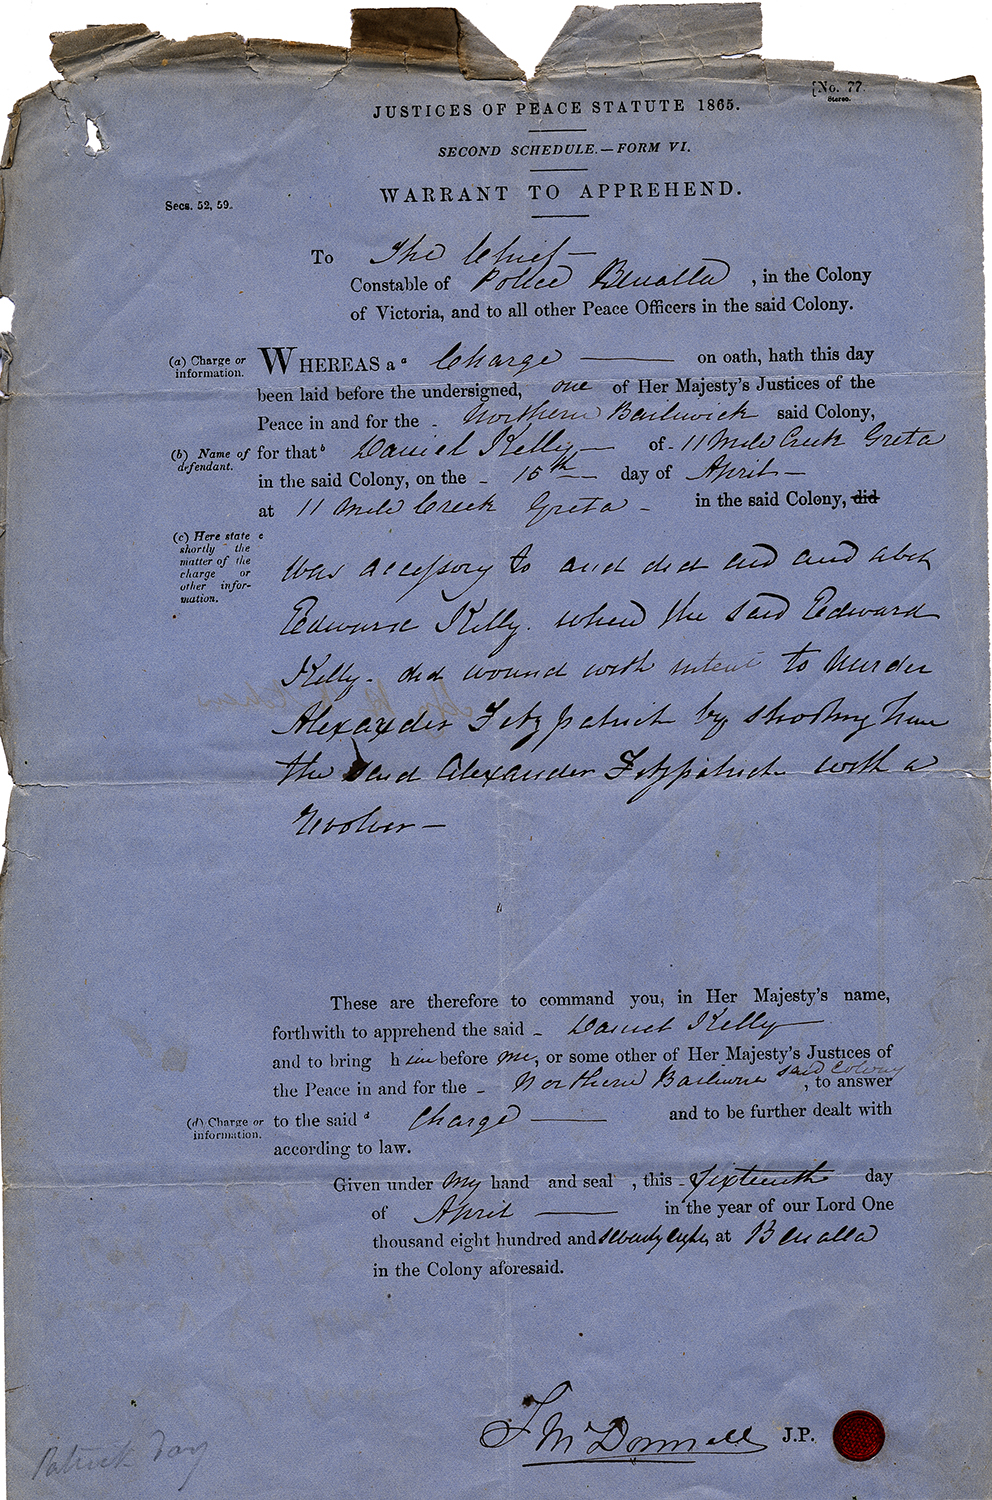 [No. 77.
Stereo.
JUSTICES OF PEACE STATUTE 1865.
SECOND SCHEDULE.—FORM VI.
WARRANT TO APPREHEND.
Secs. 52, 59.
To The Chief —
Constable of Police Benalla , in the Colony
of Victoria, and to all other Peace Officers in the said Colony.
(a) Charge or
information.
WHEREAS a a Charge — on oath, hath this day
been laid before the undersigned, one of Her Majesty's Justices of the
Peace in and for the - Northern Bailiwick said Colony,
(b) Name of
defendant.
for that b Daniel Kelly — of - 11 Mile Creek Greta
in the said Colony, on the - 15th — day of April —
at 11 Mile Creek Greta - in the said Colony, did
(c) Here state
shortly the
matter of the
charge or
other infor-
mation.
c
Was accessory to and did aid and abet
Edward Kelly. when the said Edward
Kelly. did wound with intent to Murder
Alexander Fitzpatrick by shooting him
the said Alexander Fitzpatrick with a
revolver —
These are therefore to command you, in Her Majesty's name,
forthwith to apprehend the said - Daniel Kelly —
and to bring him before me, or some other of Her Majesty's Justices of
the Peace in and for the - Northern Bailiwick said Colony , to answer
(d) Charge or
information.
to the said d Charge — and to be further dealt with
according to law.
Given under my hand and seal , this - Sixteenth day
of April — in the year of our Lord One
thousand eight hundred and seventy eight, at Benalla
in the Colony aforesaid.
J McDonnell J.P.
Patrick Day